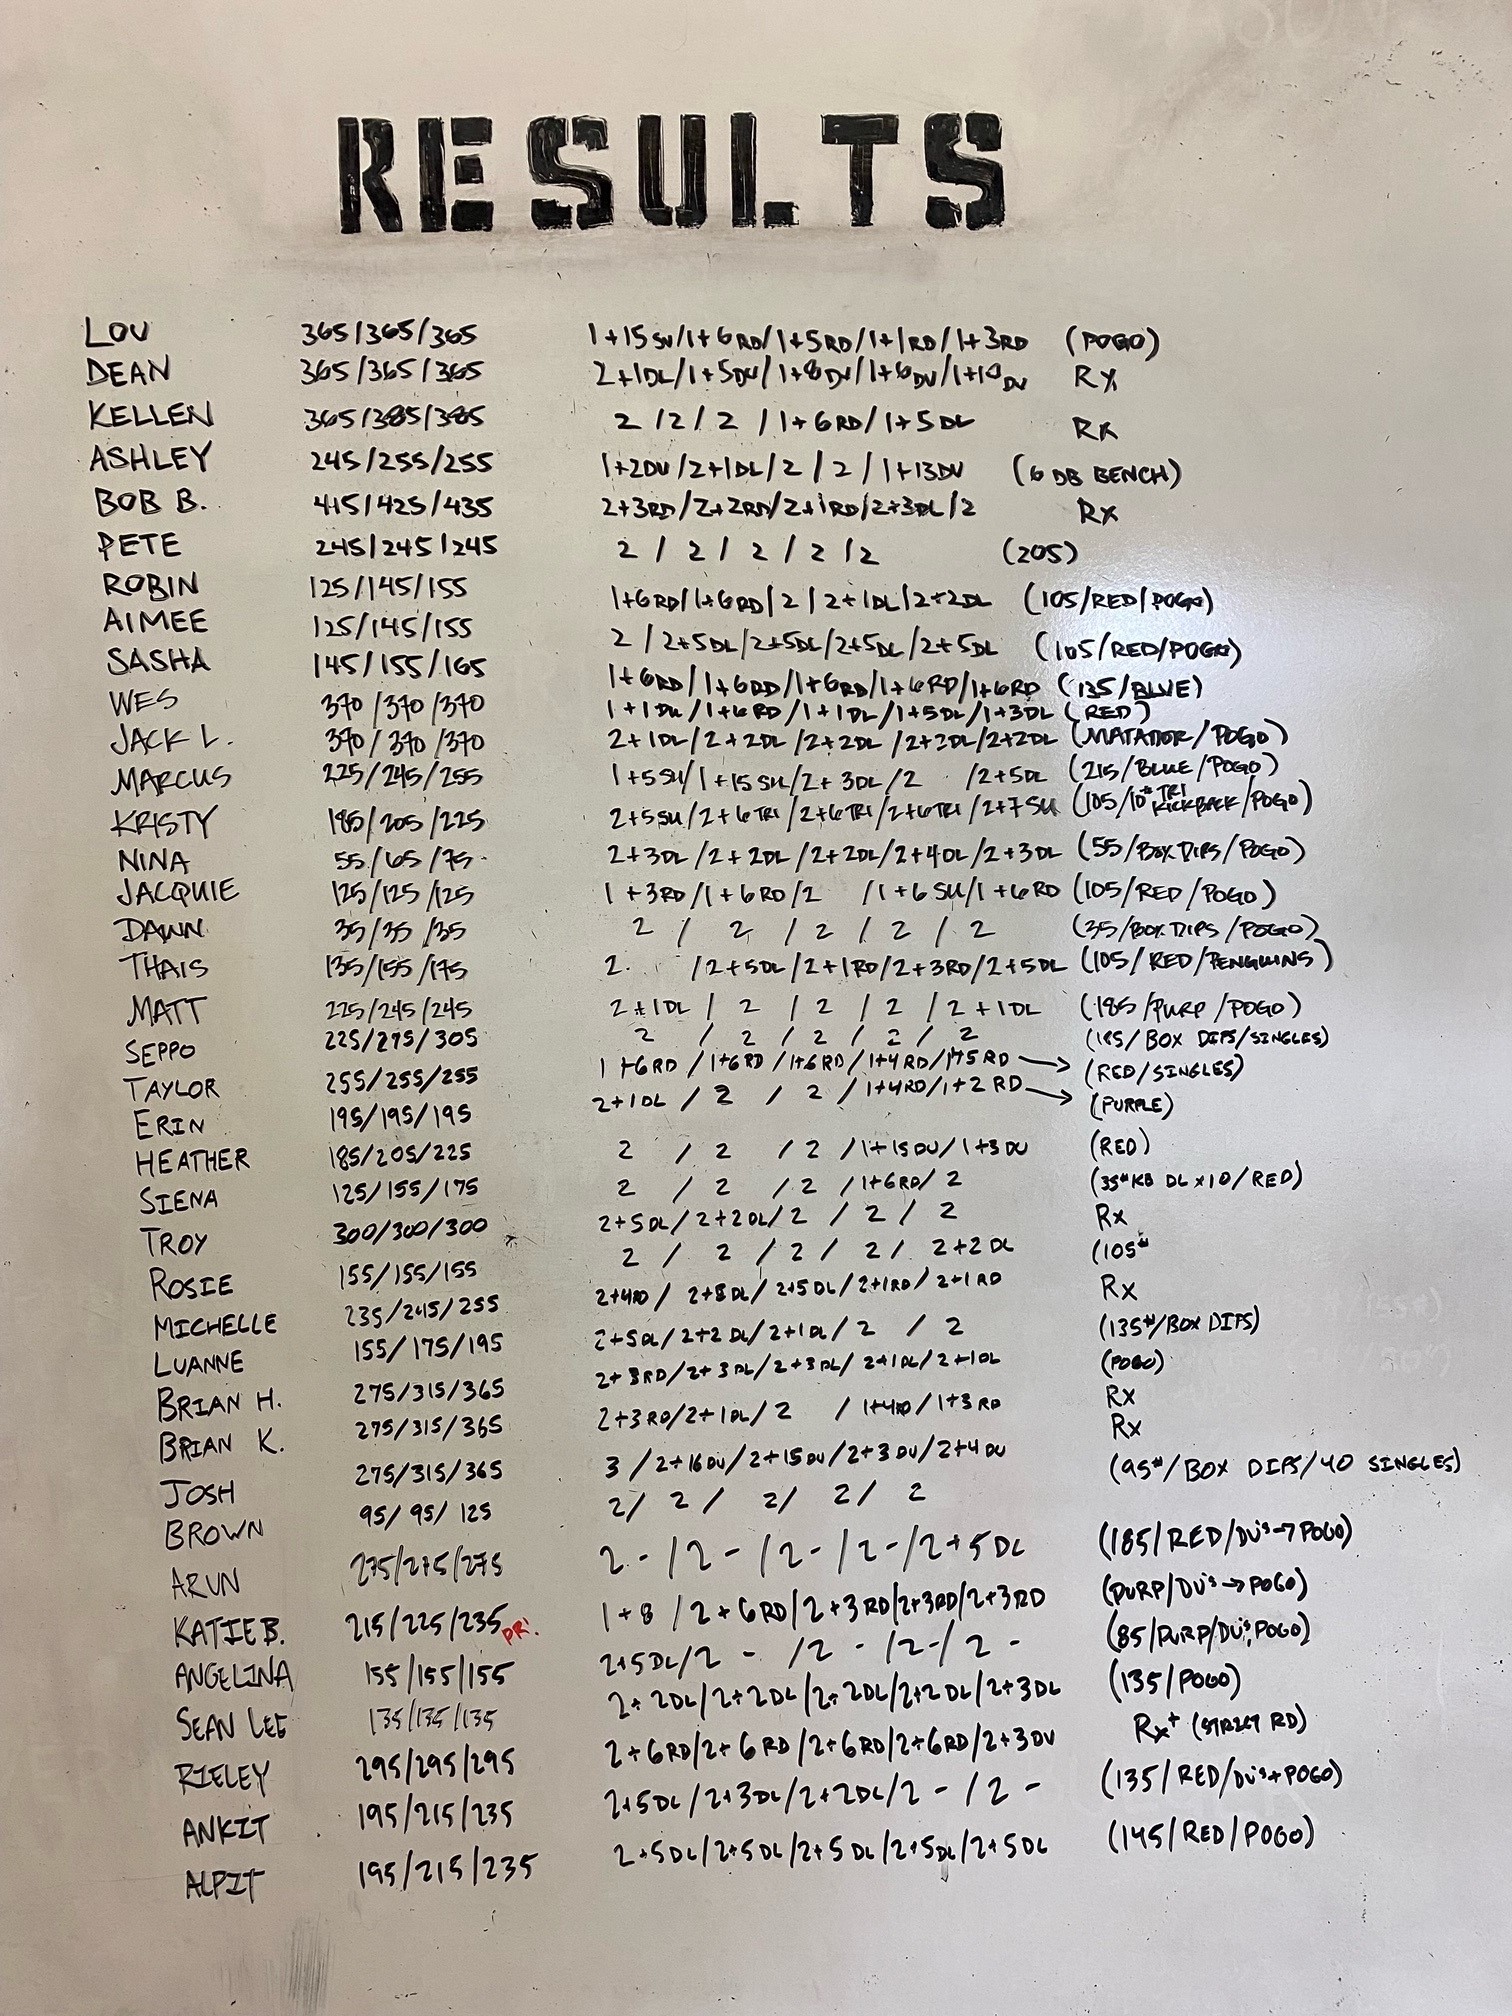 RESULTS
LOU 365/365/365 1+15SU/1+6RD/1+5RD/1+1RD/1+3RD (POGO)
DEAN 365/365/365 2+1DL/1+5DU/1+8DU/1+6DU/1+10DU Rx
KELLEN 365/385/385 2/2/2/1+6RD/1+5DL Rx
ASHLEY 245/255/255 1+2DU/2+1DL/2/2/1+13DU (6 DB BENCH)
BOB B. 415/425/435 2+3RD/2+2RD/2+1RD/2+3DL/2 Rx
PETE 245/245/245 2/2/2/2/2 (205)
ROBIN 125/145/155 1+6RD/1+6RD/2/2+1DL/2+2DL (105/RED/POGO)
AIMEE 125/145/155 2/2+5DL/2+5DL/2+5DL/2+5DL (105/RED/POGO)
SASHA 145/155/165 1+6RD/1+6RD/1+6RD/1+6RD/1+6RD (135/BLUE)
WES 370/370/370 1+1DU/1+6RD/1+1DL/1+5DL/1+3DL (RED)
JACK L. 370/370/370 2+1DL/2+2DL/2+2DL/2+2DL/2+2DL (MATADOR/POGO)
MARCUS 225/245/255 1+5SU/1+15SU/2+3DL/2/2+5DL (215/BLUE/POGO)
KRISTY 185/205/225 2+5SU/2+6TRI/2+6TRI/2+6TRI/2+7SU (105/10# TRI KICKBACK/POGO)
NINA 55/65/75 2+3DL/2+2DL/2+2DL/2+4DL/2+3DL (55/BOX DIPS/POGO)
JACQUIE 125/125/125 1+3RD/1+6RD/2/1+6SU/1+6RD (105/RED/POGO)
DAWN 35/35/35 2/2/2/2/2 (35/BOX DIPS/POGO)
THAIS 135/155/175 2./2+5DL/2+1RD/2+3RD/2+5DL (105/RED/PENGUINS)
MATT 225/245/245 2+1DL/2/2/2/2+1DL (185/PURP/POGO)
SEPPO 225/275/305 2/2/2/2/2 (185/BOX DIPS/SINGLES)
TAYLOR 255/255/255 1+6RD/1+6RD/1+6RD/1+4RD/1+5RD → (RED/SINGLES)
ERIN 195/195/195 2+1DL/2/2/1+4RD/1+2RD → (PURPLE)
HEATHER 185/205/225 2/2/2/1+15DU/1+3DU (RED)
SIENA 125/155/175 2/2/2/1+6RD/2 (35# KB DL x10/RED)
TROY 300/300/300 2+5DL/2+2DL/2/2/2 Rx
ROSIE 155/155/155 2/2/2/2/2+2DL (105#
MICHELLE 235/245/255 2+4RD/2+8DL/2+5DL/2+1RD/2+1RD Rx
LUANNE 155/175/195 2+5DL/2+2DL/2+1DL/2/2 (135#/BOX DIPS)
BRIAN H. 275/315/365 2+3RD/2+3DL/2+3DL/2+1DL/2+1DL (POGO)
BRIAN K. 275/315/365 2+3RD/2+1DL/2/1+4RD/1+3RD Rx
JOSH 275/315/365 3/2+16DU/2+15DU/2+3DU/2+4DU Rx
BROWN 95/95/125 2/2/2/2/2 (95#/BOX DIPS/40 SINGLES)
ARUN 275/275/275 2-/2-/2-/2-/2+5DL (185/RED/DU's→POGO)
KATIE B. 215/225/235 PR! 1+8/2+6RD/2+3RD/2+3RD/2+3RD (PURP/DU's→POGO)
ANGELINA 155/155/155 2+5DL/2-/2-/2-/2- (85/PURP/DU's, POGO)
SEAN LEE 135/135/135 2+2DL/2+2DL/2+2DL/2+2DL/2+3DL (135/POGO)
RIELEY 295/295/295 2+6RD/2+6RD/2+6RD/2+6RD/2+3DU Rx+ (STRICT RD)
ANKIT 195/215/235 2+5DL/2+3DL/2+2DL/2-/2- (135/RED/DU's+POGO)
ALPIT 195/215/235 2+5DL/2+5DL/2+5DL/2+5DL/2+5DL (145/RED/POGO)